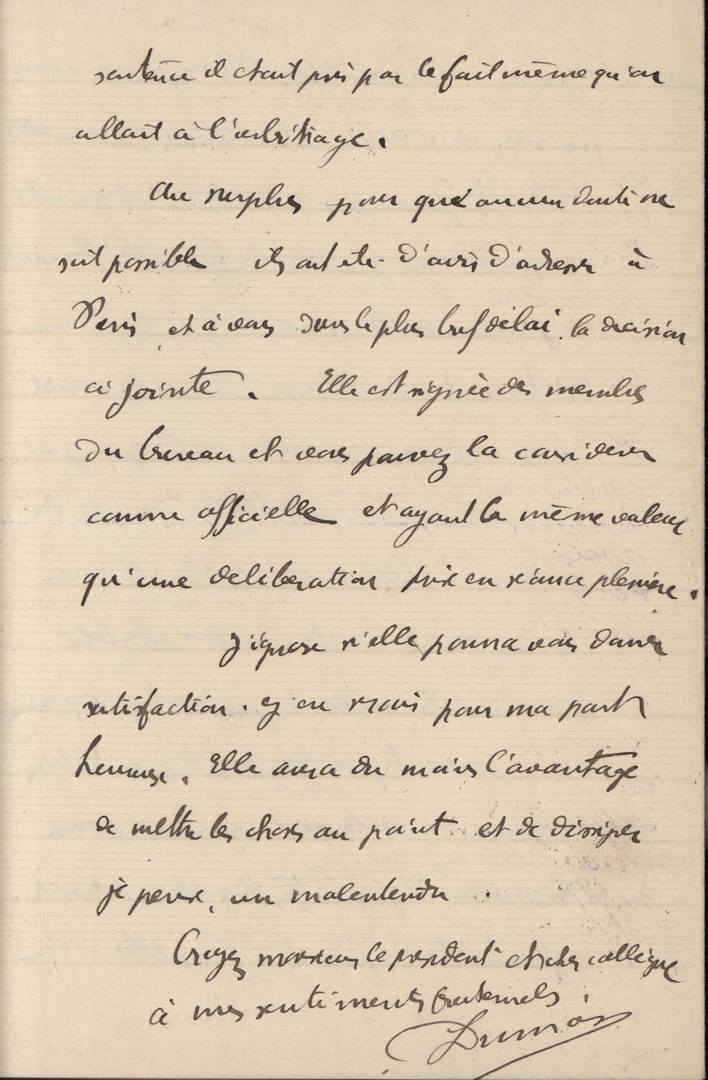 sentence il était pris par le fait même qu'on
allait à l'arbitrage.
Au surplus pour qu'aucun doute ne
soit possible ils ont été d'avis d'adresser à
Paris et à vous dans le plus bref délai la décision
ci jointe. Elle est signée des membres
du bureau et vous pouvez la considerer
comme officielle et ayant la même valeur
qu'une deliberation prise en séance plenière.
J'ignore si elle pourra vous donner
satisfaction. J'en serais pour ma part
heureux. Elle aura du moins l'avantage
de mettre les choses au point et de dissiper
je pense, un malentendu.
Croyez monsieur le president et cher collègue
à mes sentiments fraternels.